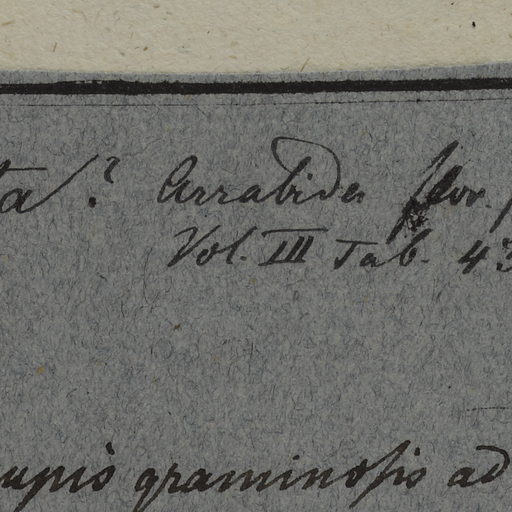 ta? Arrabidea flor.
Vol. III Tab. 43
rupis graminosis ad